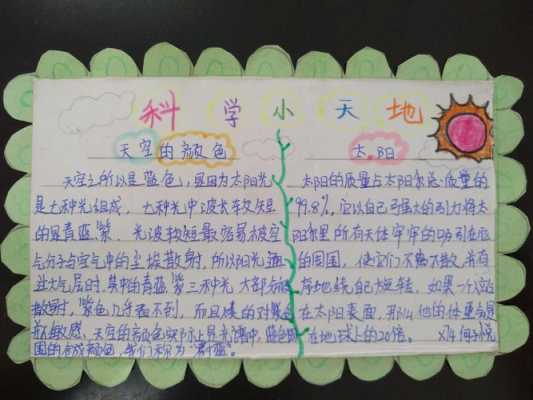 科学小天地
天空的颜色
天空之所以是蓝色，是因为太阳光
是七种光组成，七种光中波长较短
的是青蓝紫，光波较短最容易被空
气分子与空气中的尘埃散射，所以阳光
过大气层时，其中的青蓝紫三种光大部分
散射，紫色几乎看不到，而且
敏感，天空的颜色实际上是光谱中蓝色
围的合成颜色，我们称为"
太阳
太阳的质量占太阳系总质量的
99.8%，它以自己强大的引力将太
阳系里所有天体牢牢的吸引在
的周围，使它们不离不散，
有序地绕自己旋转，如果一个人
在太阳表面，那么他的体重
在地球上的20倍。